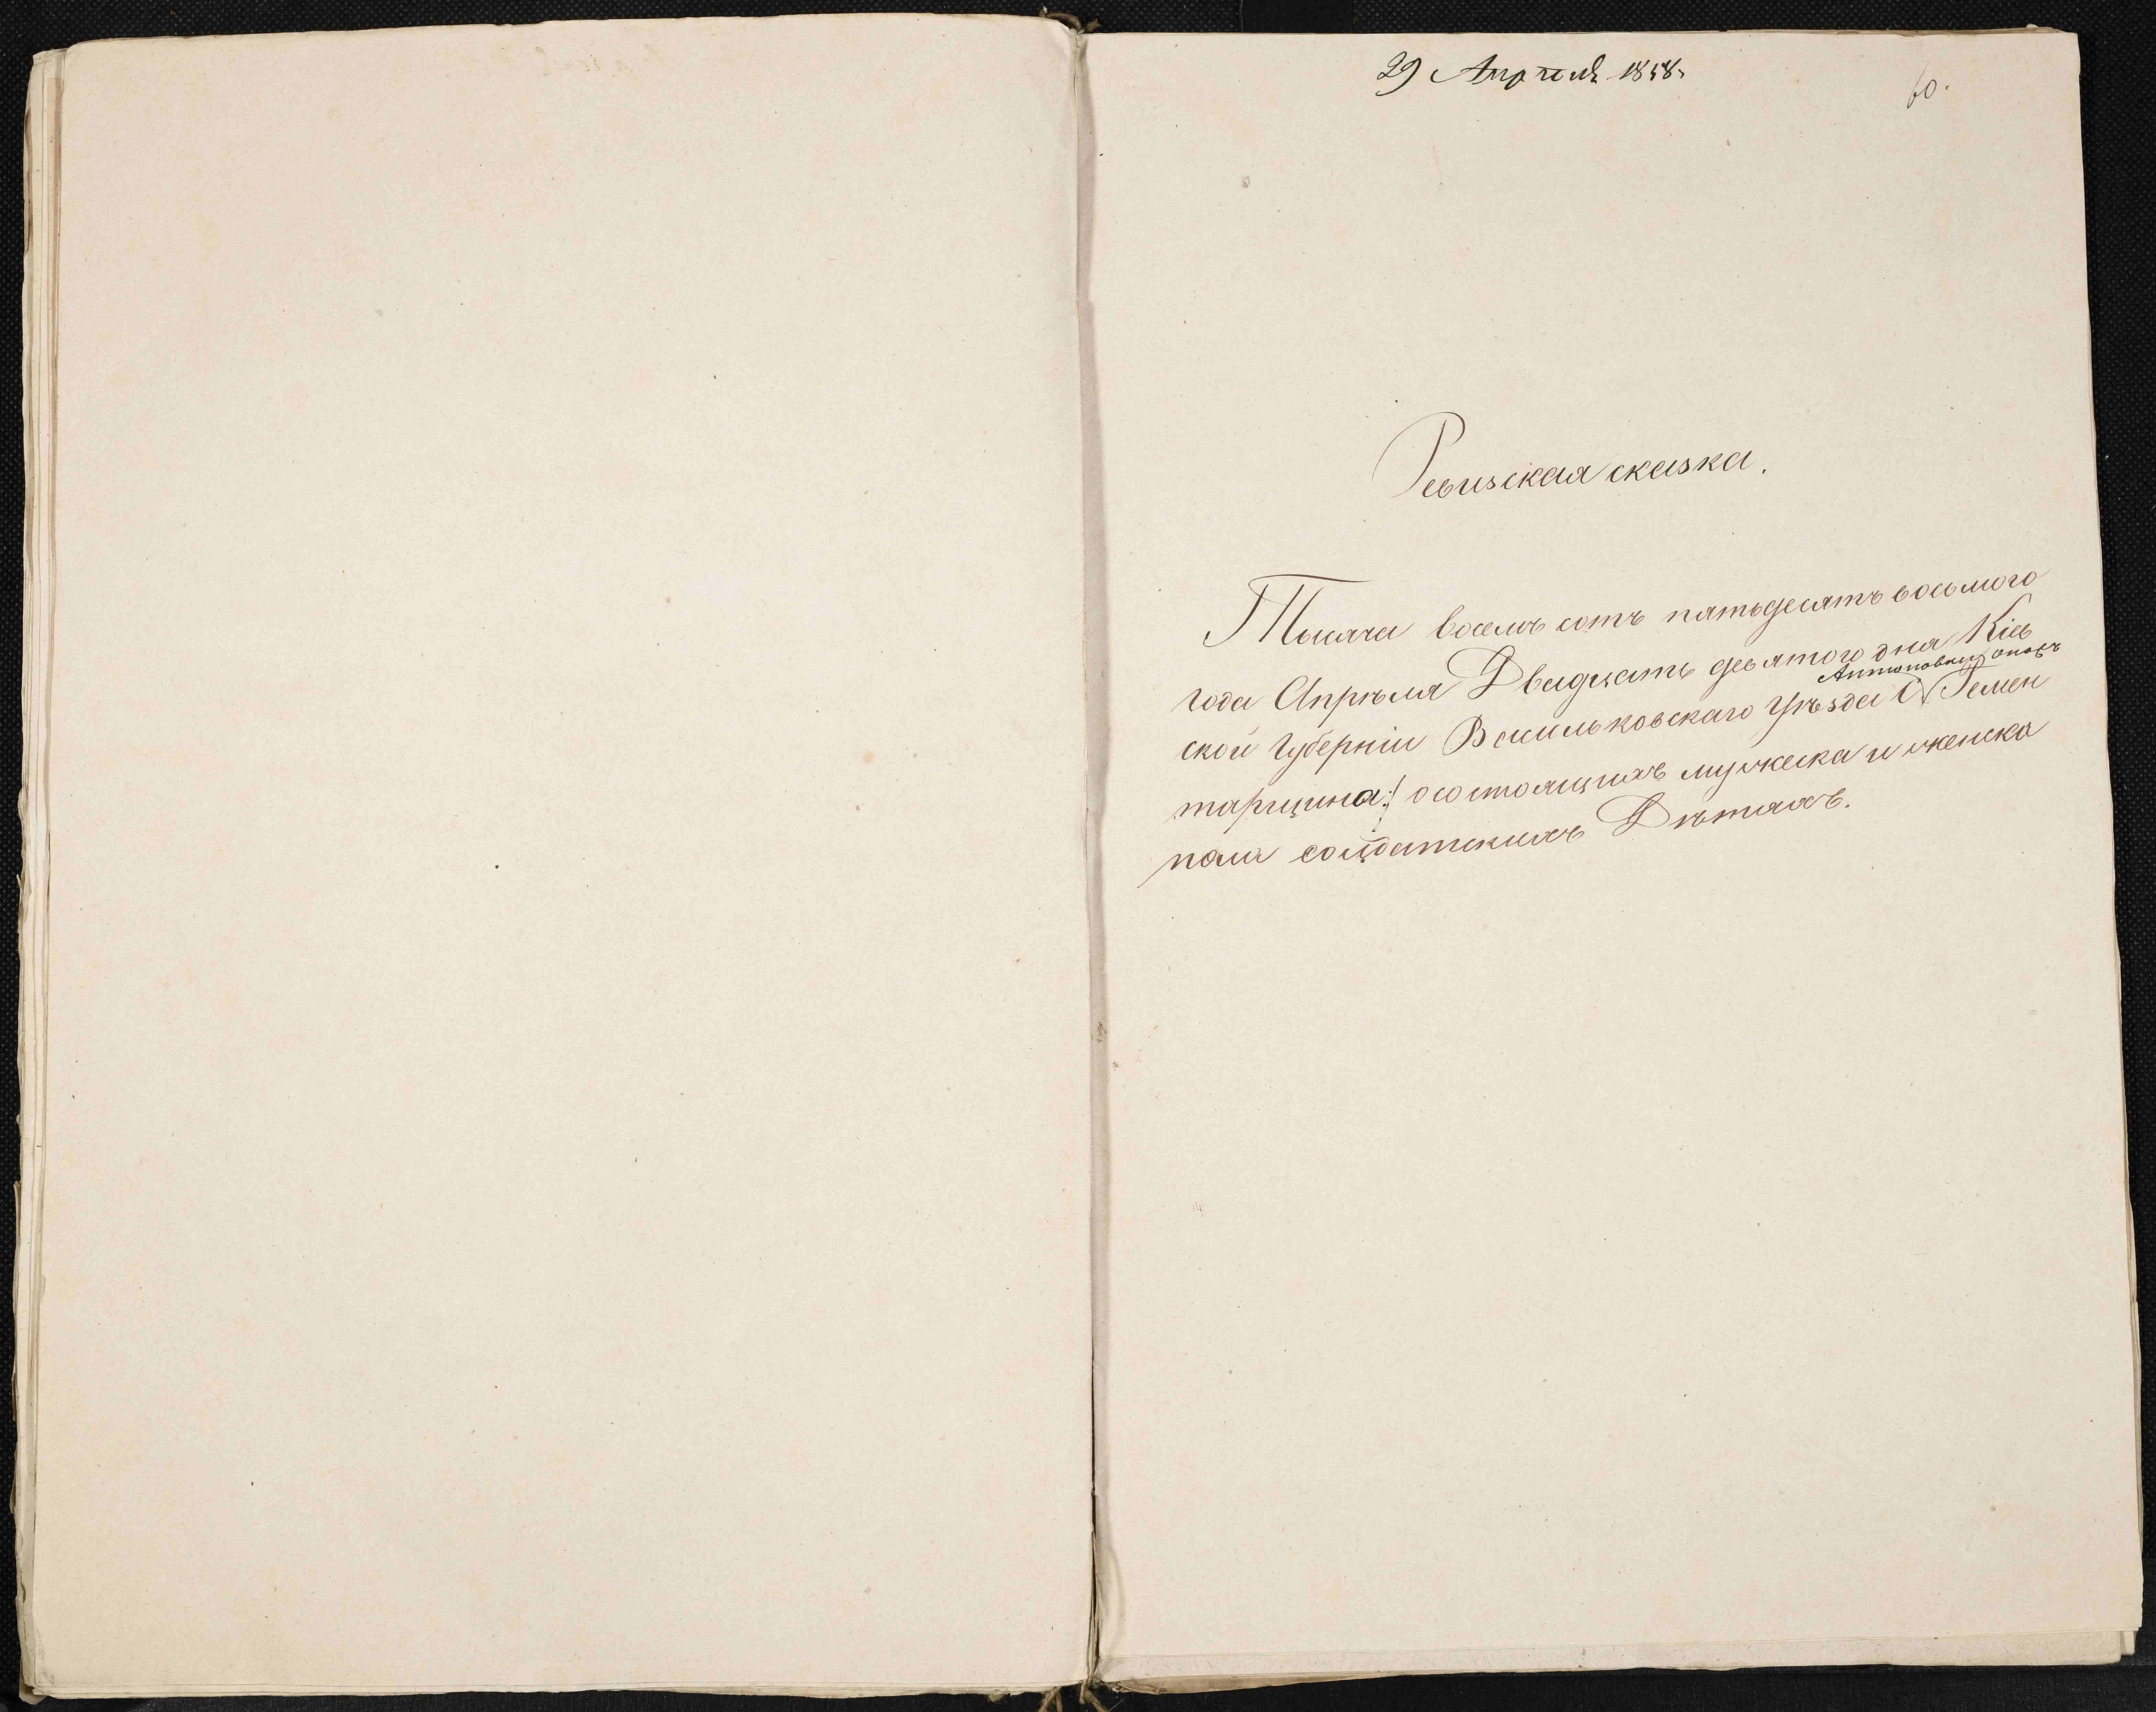 29 Апреля 1858.
60.
Ревизская сказка.
Тысяча восемь сотъ пятьдесятъ восьмого
года Апрѣля Двадцать девятого дня Кіев
ской Губерніи Васильковскаго Уѣзда
Антоновки
тарщина: о состоящихъ мужеска и женска
пола солдатскихъ Дѣтяхъ.